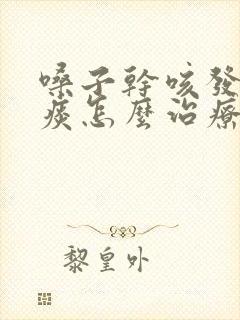 嗓子幹咳發
痰怎麼治療
黎皇外